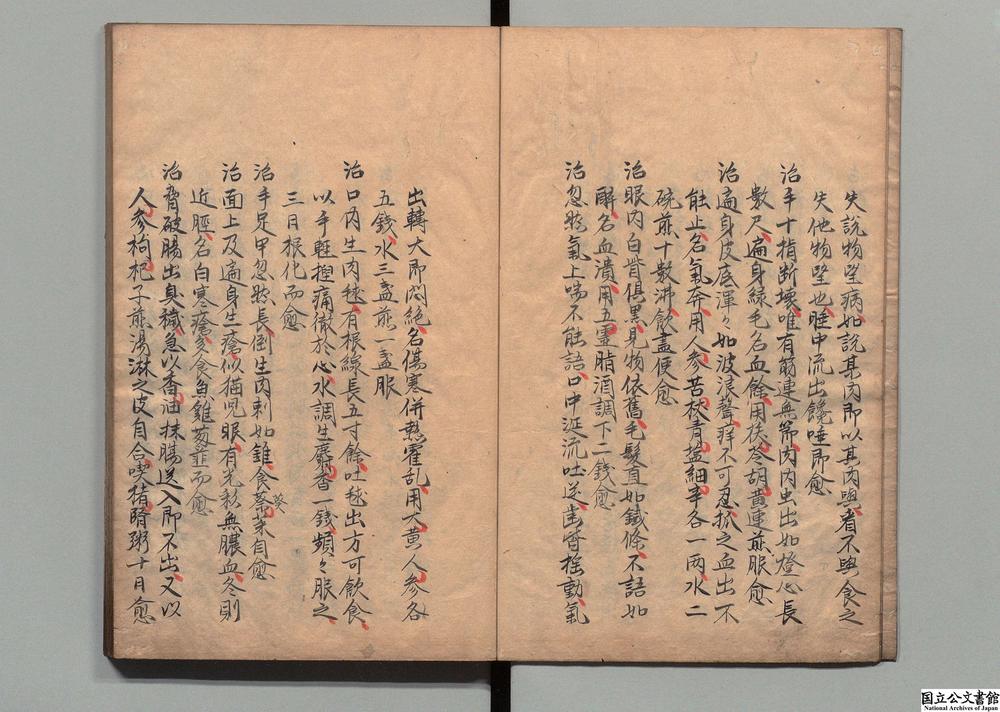 失説物望病如説某肉即以某肉與看不與食之
失他物望也睡中流出饞唾即愈
治手十指断壊唯有筋連無節肉内虫出如燈心長
数尺遍身緑毛名血餘用茯苓胡黄連煎服愈
治遍身皮底渾々如波浪聲痒不可忍抓之血出不
能止名氣奔用人参苦杖青塩細辛各一両水二
碗煎十数沸飲盡便愈
治眼内白眥俱黒見物依舊毛髪直如鐵條不語如
酔名血潰用五霊脂酒調下二銭愈
治忽然氣上喘不能語口中涎流吐逆歯皆揺動氣
出轉大即悶絶名傷寒併熱霍乱用大黄人参各
五銭水三盞煎一盞服
治口内生肉毬有根線長五寸餘吐毬出方可飲食
以手軽揑痛徹於心水調生麝香一銭頻々服之
三日根化而愈
治手足甲忽然長倒生肉刺如錐食葵菜自愈
葵
治面上及遍身生瘡似猫児眼有光彩無膿血冬則
近脛名白寒瘡多食魚雞葱韮而愈
治脅破腸出臭穢急以香油抹腸送入即不出又以
人参枸杞子煎湯淋之皮自合喫猪腎粥十日愈
国立公文書館
National Archives of Japan